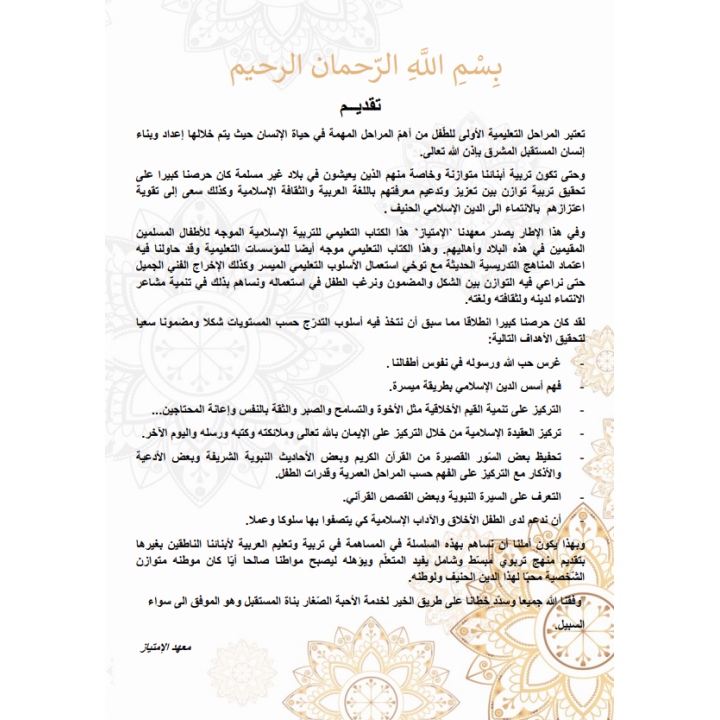 بِسْمِ اللَّهِ الرّحمان الرحيم
تقديـــم
تعتبر المراحل التعليمية الأولى للطّفل من أهمّ المراحل المهمة في حياة الإنسان حيث يتم خلالها إعداد وبناء
إنسان المستقبل المشرق بإذن الله تعالى.
وحتى تكون تربية أبنائنا متوازنة وخاصة منهم الذين يعيشون في بلاد غير مسلمة كان حرصنا كبيرا على
تحقيق تربية توازن بين تعزيز وتدعيم معرفتهم باللغة العربية والثقافة الإسلامية وكذلك سعى إلى تقوية
اعتزازهم بالانتماء الى الدين الإسلامي الحنيف .
وفي هذا الإطار يصدر معهدنا `الإمتياز` هذا الكتاب التعليمي للتربية الإسلامية الموجه للأطفال المسلمين
المقيمين في هذه البلاد وأهاليهم. وهذا الكتاب التعليمي موجه أيضا للمؤسسات التعليمية وقد حاولنا فيه
اعتماد المناهج التدريسية الحديثة مع توخي استعمال الأسلوب التعليمي الميسر وكذلك الإخراج الفني الجميل
حتى نراعي فيه التوازن بين الشكل والمضمون ونرغب الطفل في استعماله ونساهم بذلك في تنمية مشاعر
الانتماء لدينه ولثقافته ولغته.
لقد كان حرصنا كبيرا انطلاقا مما سبق أن نتخذ فيه أسلوب التدرّج حسب المستويات شكلا ومضمونا سعيا
لتحقيق الأهداف التالية:
- غرس حب الله ورسوله في نفوس أطفالنا .
- فهم أسس الدين الإسلامي بطريقة ميسرة.
- التركيز على تنمية القيم الأخلاقية مثل الأخوة والتسامح والصبر والثقة بالنفس وإعانة المحتاجين...
- تركيز العقيدة الإسلامية من خلال التركيز على الإيمان بالله تعالى وملائكته وكتبه ورسله واليوم الآخر.
- تحفيظ بعض السّور القصيرة من القرآن الكريم وبعض الأحاديث النبوية الشريفة وبعض الأدعية
والأذكار مع التركيز على الفهم حسب المراحل العمرية وقدرات الطفل.
- التعرف على السيرة النبوية وبعض القصص القرآني.
- أن ندعم لدى الطفل الأخلاق والآداب الإسلامية كي يتصفوا بها سلوكا وعملا.
وبهذا يكون أملنا أن نساهم بهذه السلسلة في المساهمة في تربية وتعليم العربية لأبنائنا الناطقين بغيرها
بتقديم منهج تربوي مبسّط وشامل يفيد المتعلّم ويؤهله ليصبح مواطنا صالحا أيّا كان موطنه متوازن
الشخصية محبّا لهذا الدين الحنيف ولوطنه.
وفقنا الله جميعا وسدّد خطانا على طريق الخير لخدمة الأحبة الصّغار بناة المستقبل وهو الموفق الى سواء
السبيل.
معهد الإمتياز